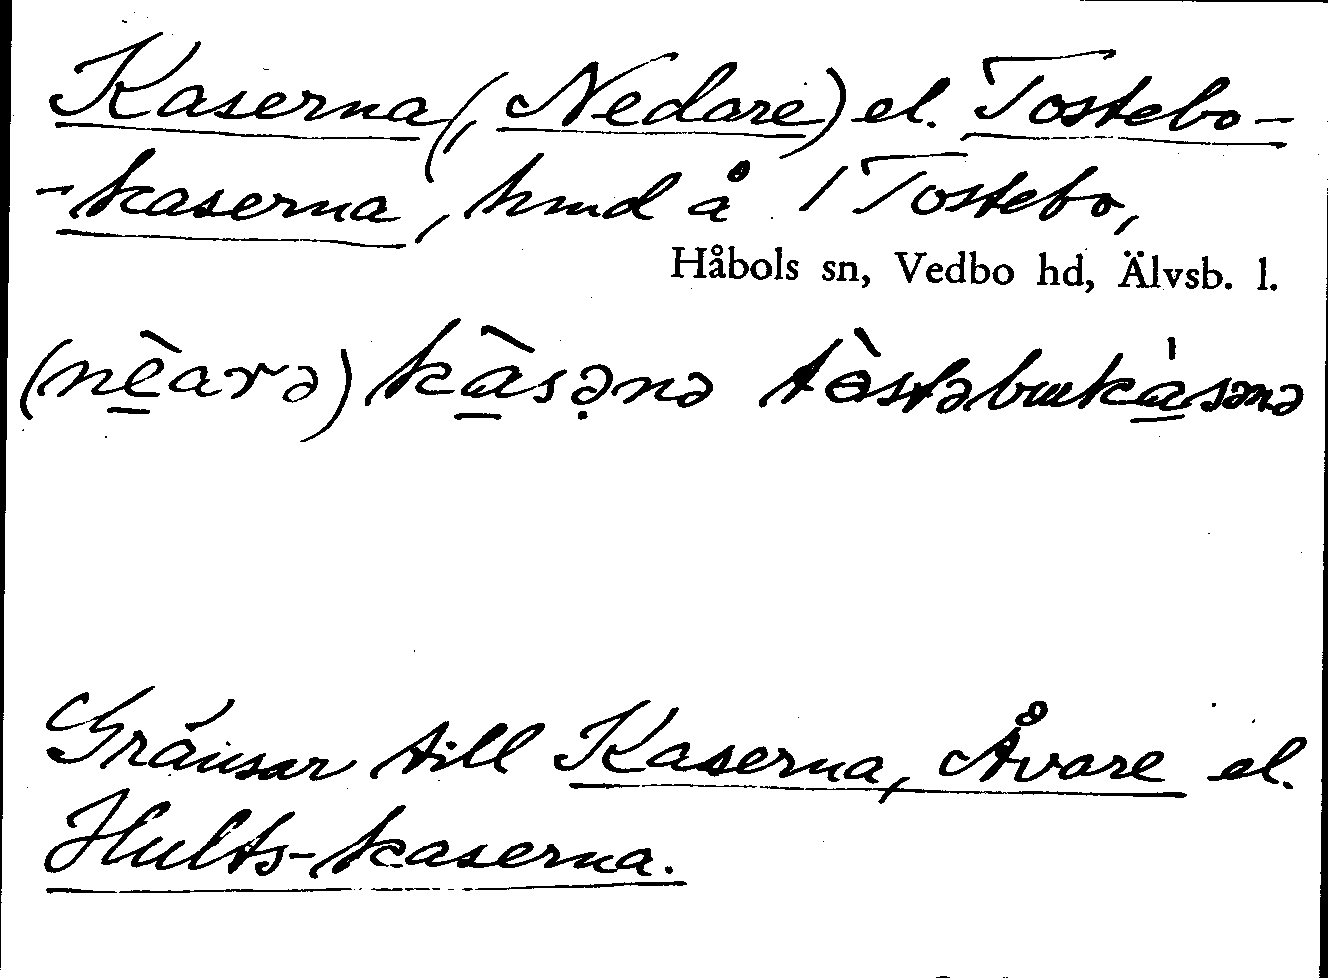 Kaserna (, Nedare) el. Tostebo-
-kaserna, hmd å 1 Tostebo,
Håbols sn, Vedbo hd, Älvsb. l.
(nèarə) kàsənə tòstəbɯkàsənə
Gränsar till Kaserna, Åvare el.
Hults-kaserna.